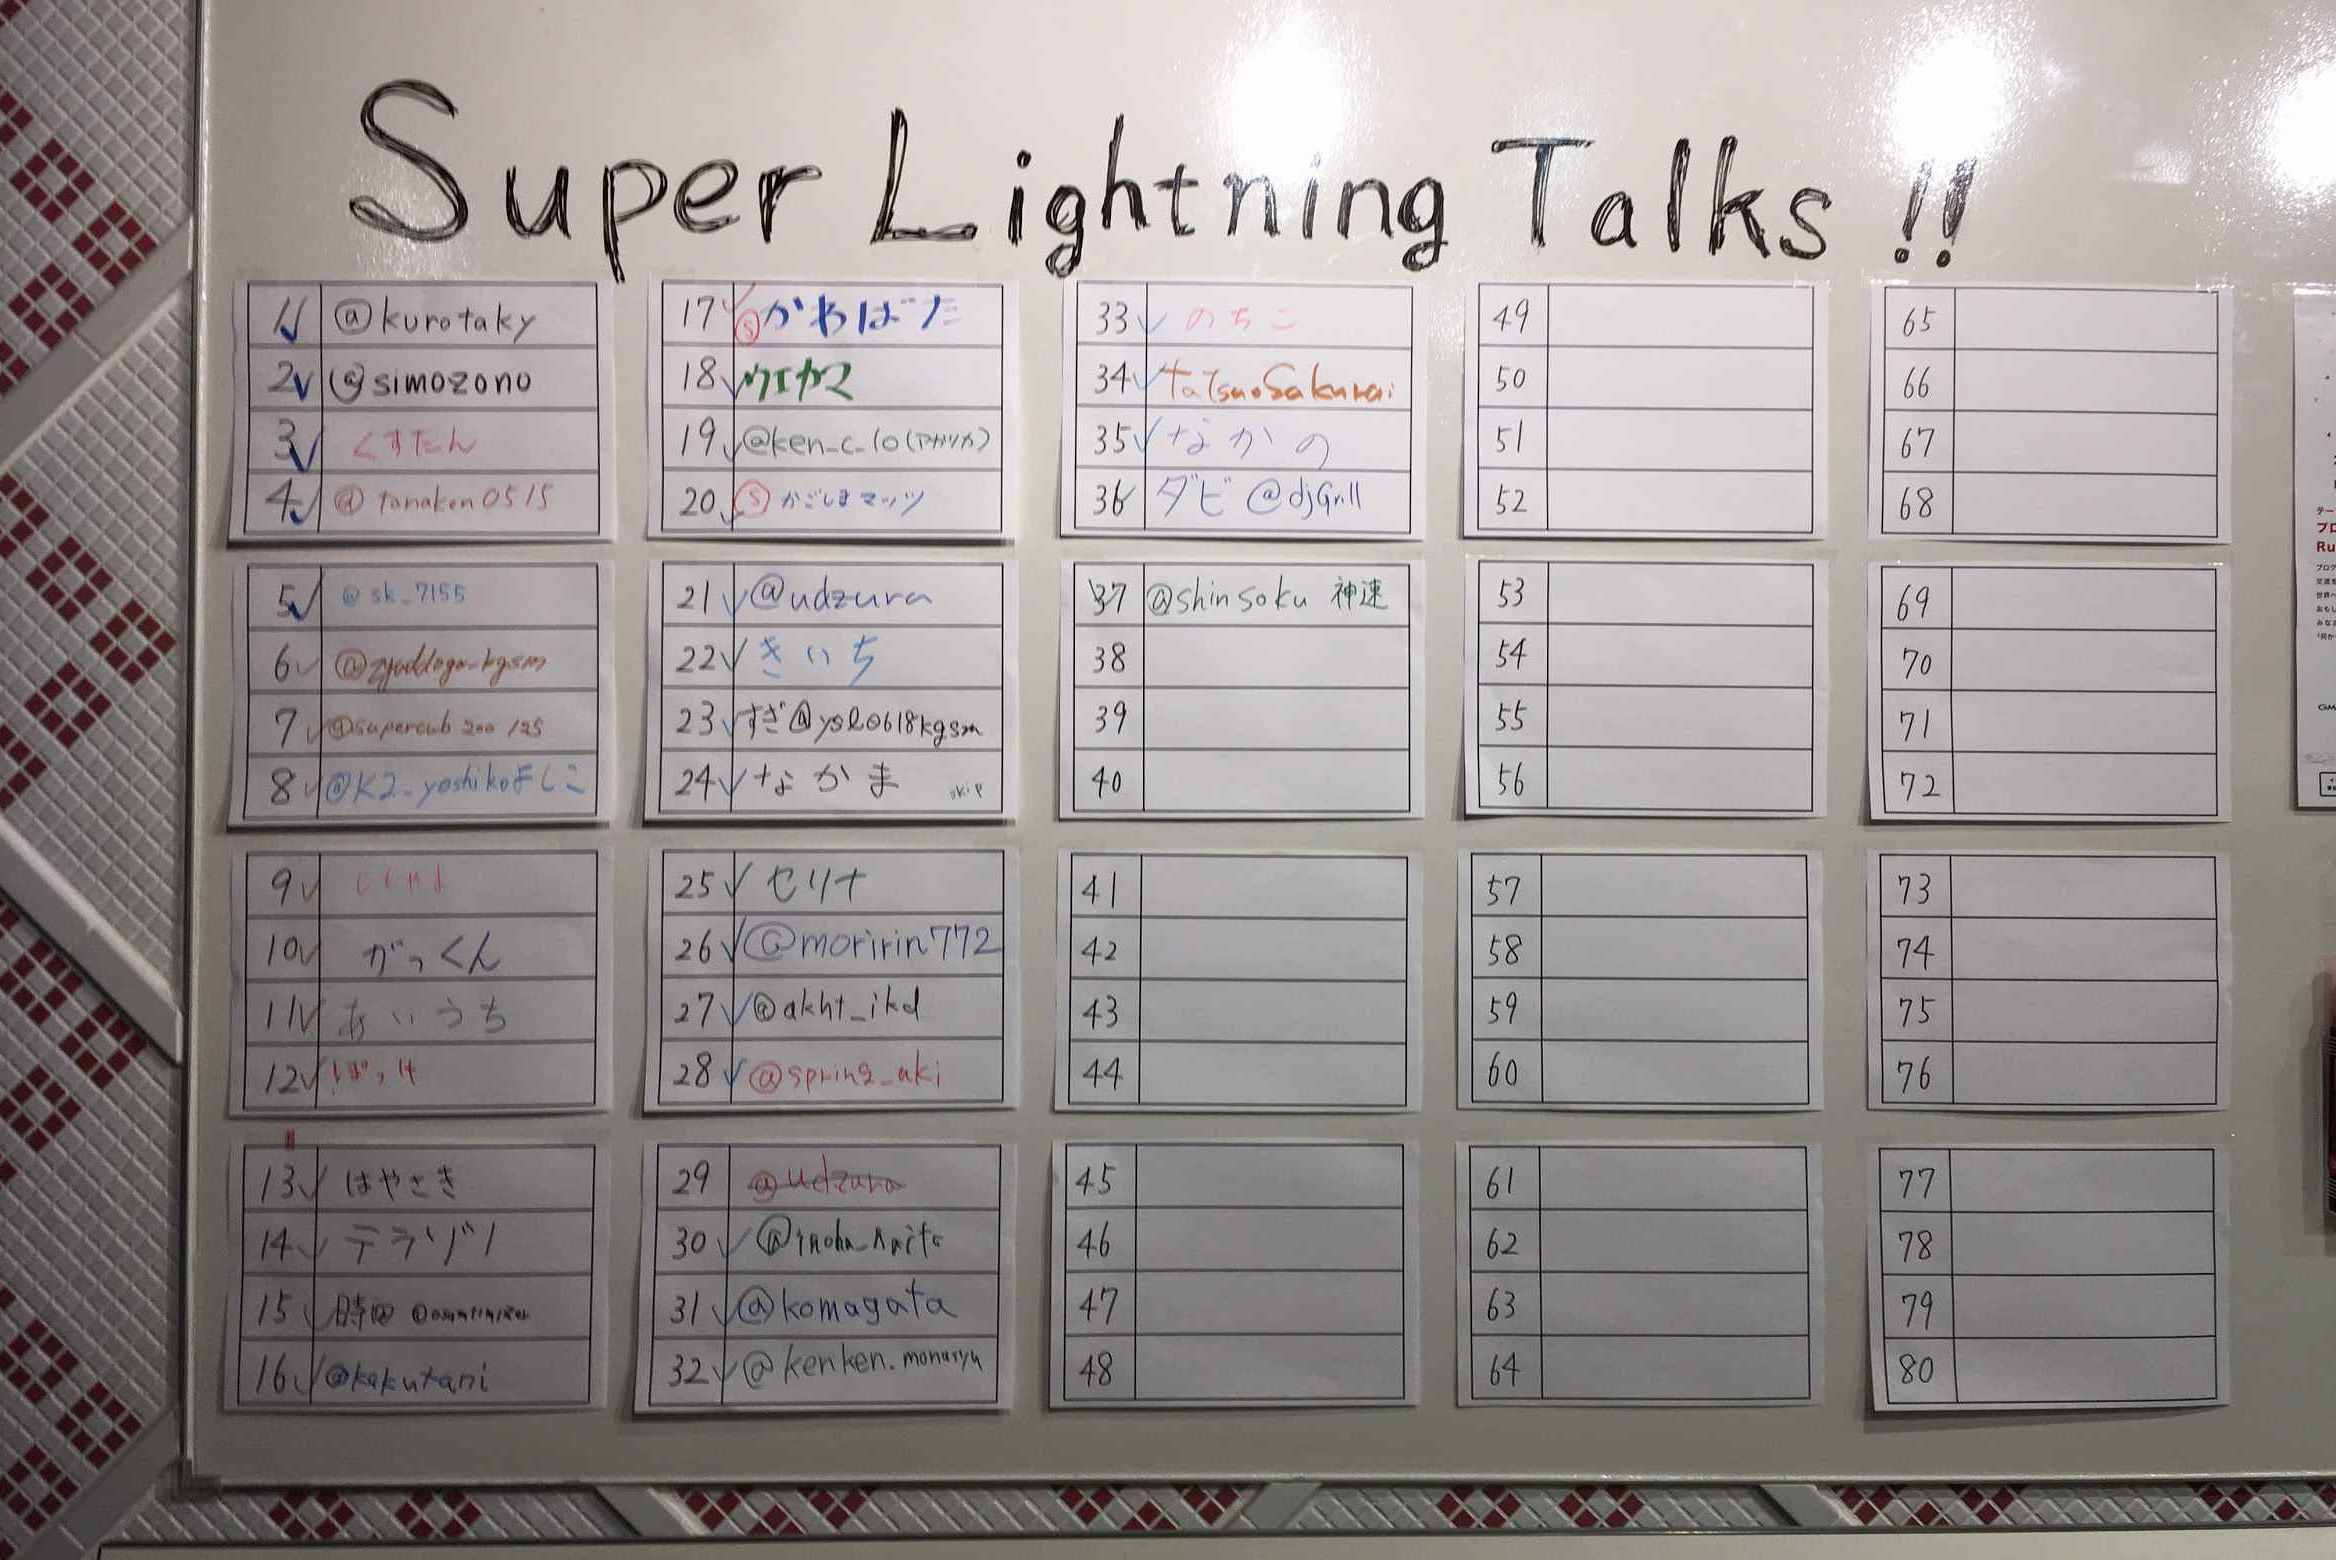 Super Lightning Talks!!
1 @kurotaky
2 @simozono
3 くすたん
4 @tanaken0515
5 @sk_7155
6
7 @supercub 200 125
8 @K2_yoshikoよしこ
9
10 がっくん
11 あいうち
12 ぽっけ
13 はやさき
14 テラゾノ
15 時田
16 @kakutani
17 Ⓢ かわばた
18 ウエカマ
19 @ken_c_lo(アカリカ)
20 Ⓢ かごしまマッツ
21 @udzura
22 きいち
23 すぎ@yslo618kgsm
24 なかま skip
25 セリナ
26 @moririn772
27 @akht_ikd
28 @spring_aki
29 @udzura
30
31 @komagata
32 @kenken.
33 のちこ
34 TatsuoSakurai
35 なかの
36 ダビ @djGrill
37 @shinsoku 神速
38
39
40
41
42
43
44
45
46
47
48
49
50
51
52
53
54
55
56
57
58
59
60
61
62
63
64
65
66
67
68
69
70
71
72
73
74
75
76
77
78
79
80